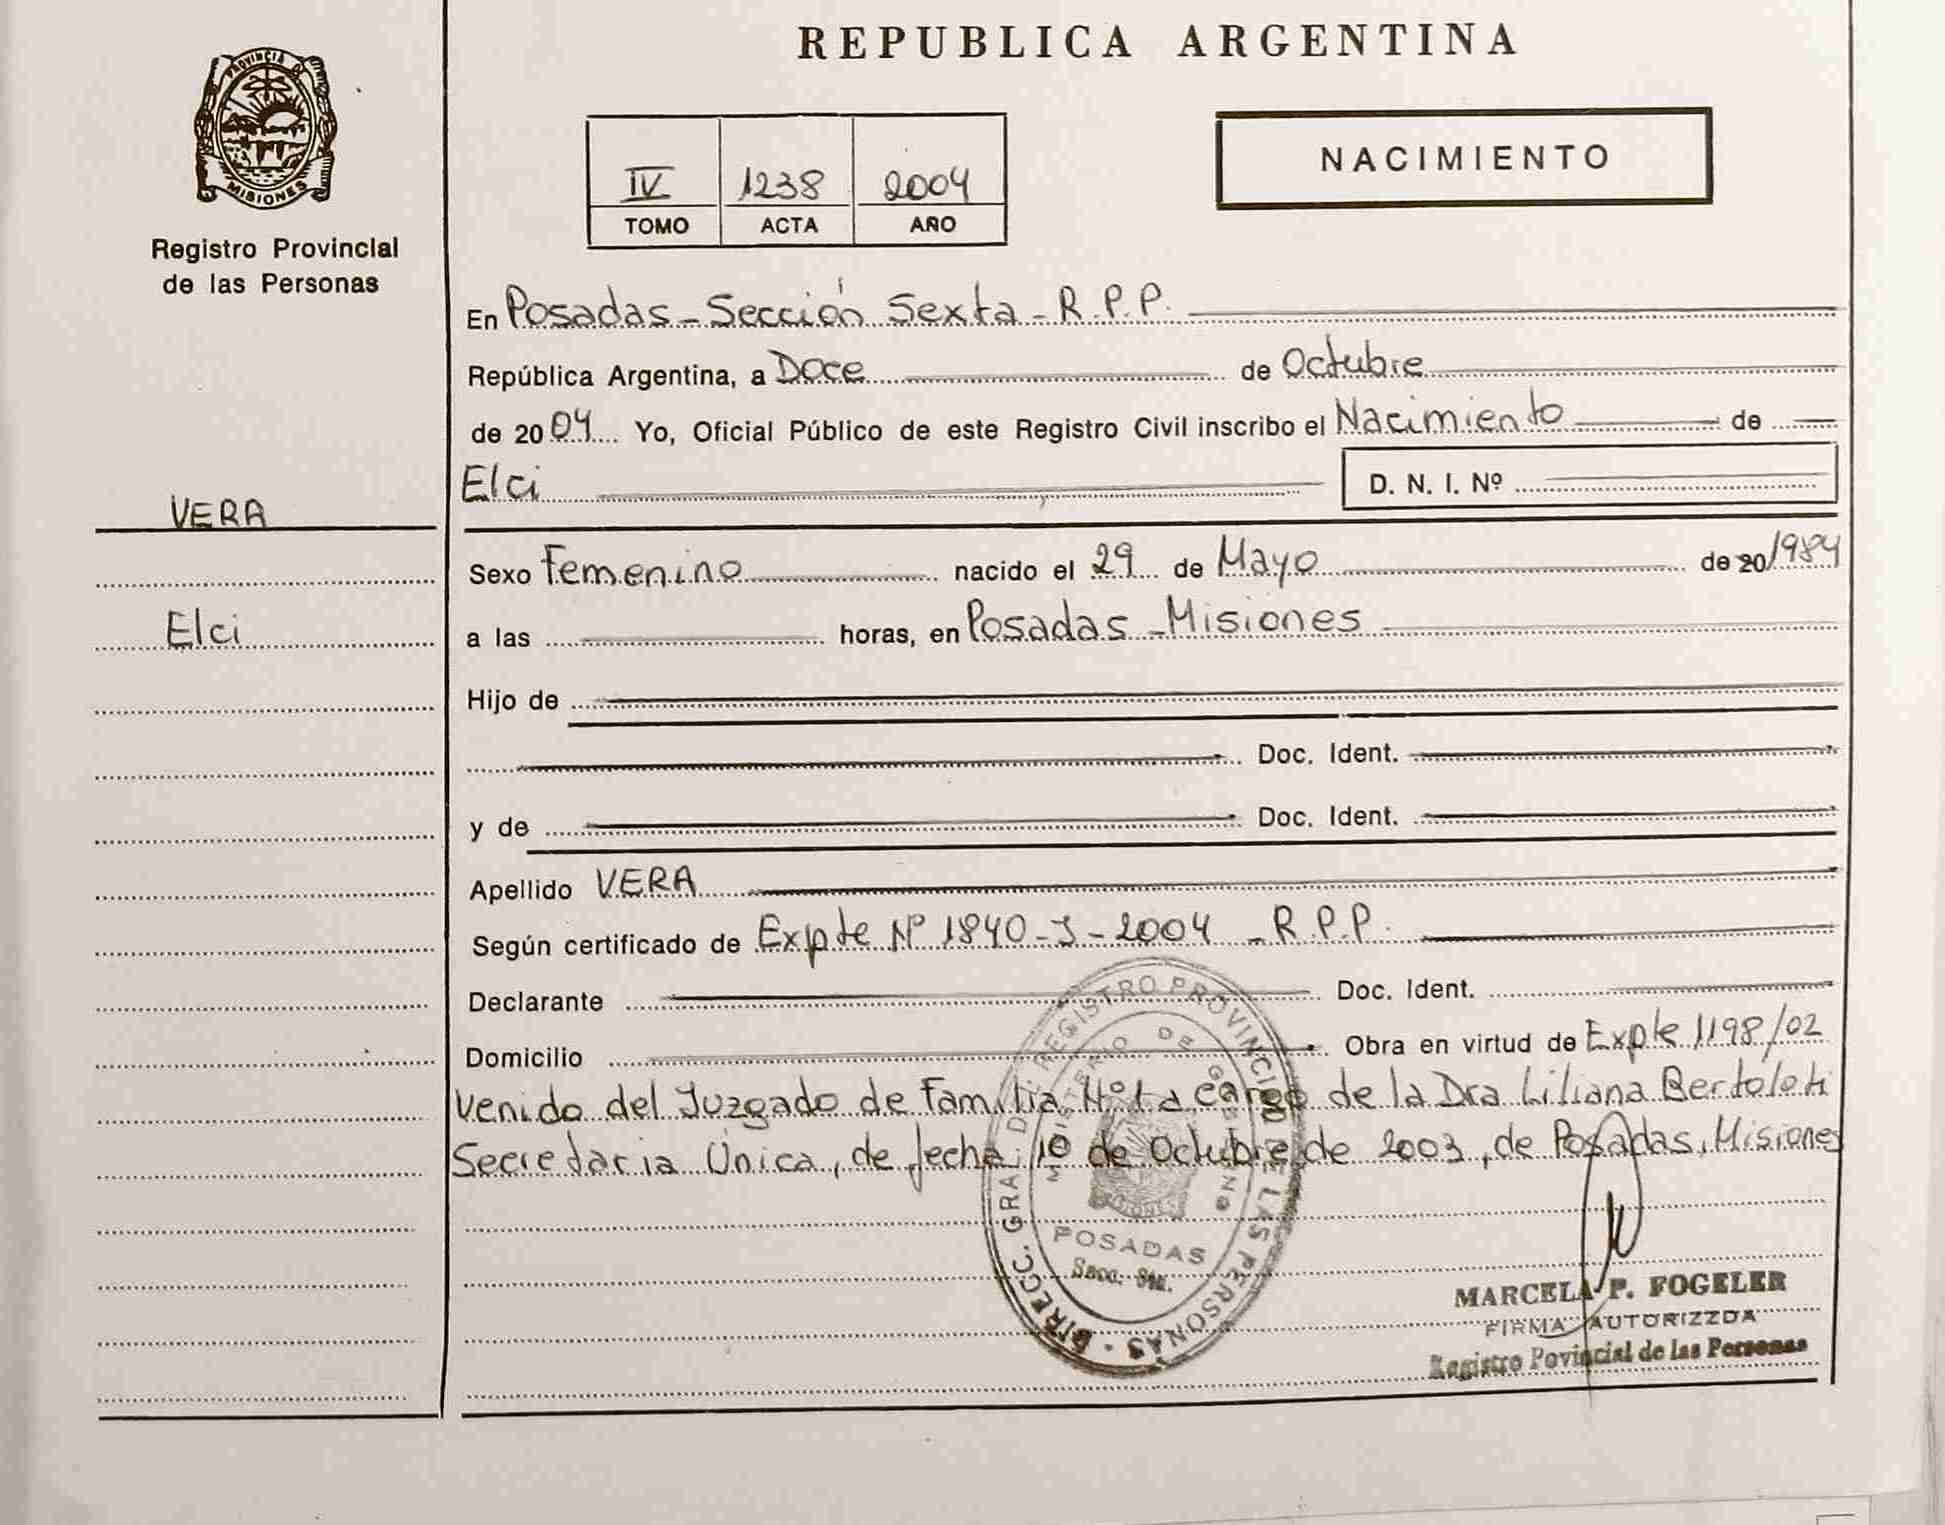 REPUBLICA ARGENTINA
PROVINCIA DE
MISIONES
Registro Provincial
de las Personas
IV 1238 2004
TOMO ACTA AÑO
NACIMIENTO
En Posadas - Sección Sexta - R.P.P.
República Argentina, a Doce de Octubre
de 2004 Yo, Oficial Público de este Registro Civil inscribo el Nacimiento de
Elci D. N. I. Nº
VERA
Sexo Femenino nacido el 29 de Mayo de 20/1984
Elci
a las horas, en Posadas - Misiones
Hijo de
Doc. Ident.
y de Doc. Ident.
Apellido VERA
Según certificado de Expte Nº 1840-J-2004 - R.P.P.
Declarante Doc. Ident.
Domicilio Obra en virtud de Expte 1198/02
Venido del Juzgado de Familia Nº 1 a cargo de la Dra Liliana Bertoleti
Secretaria Única, de fecha 10 de Octubre de 2003, de Posadas, Misiones
DIRECC. GRAL. DEL REGISTRO PROVINCIAL DE LAS PERSONAS
MINISTERIO DE GOBIERNO
POSADAS
Secc. 6ta.
MARCELA P. FOGELER
FIRMA AUTORIZZDA
Registro Povincial de las Personas